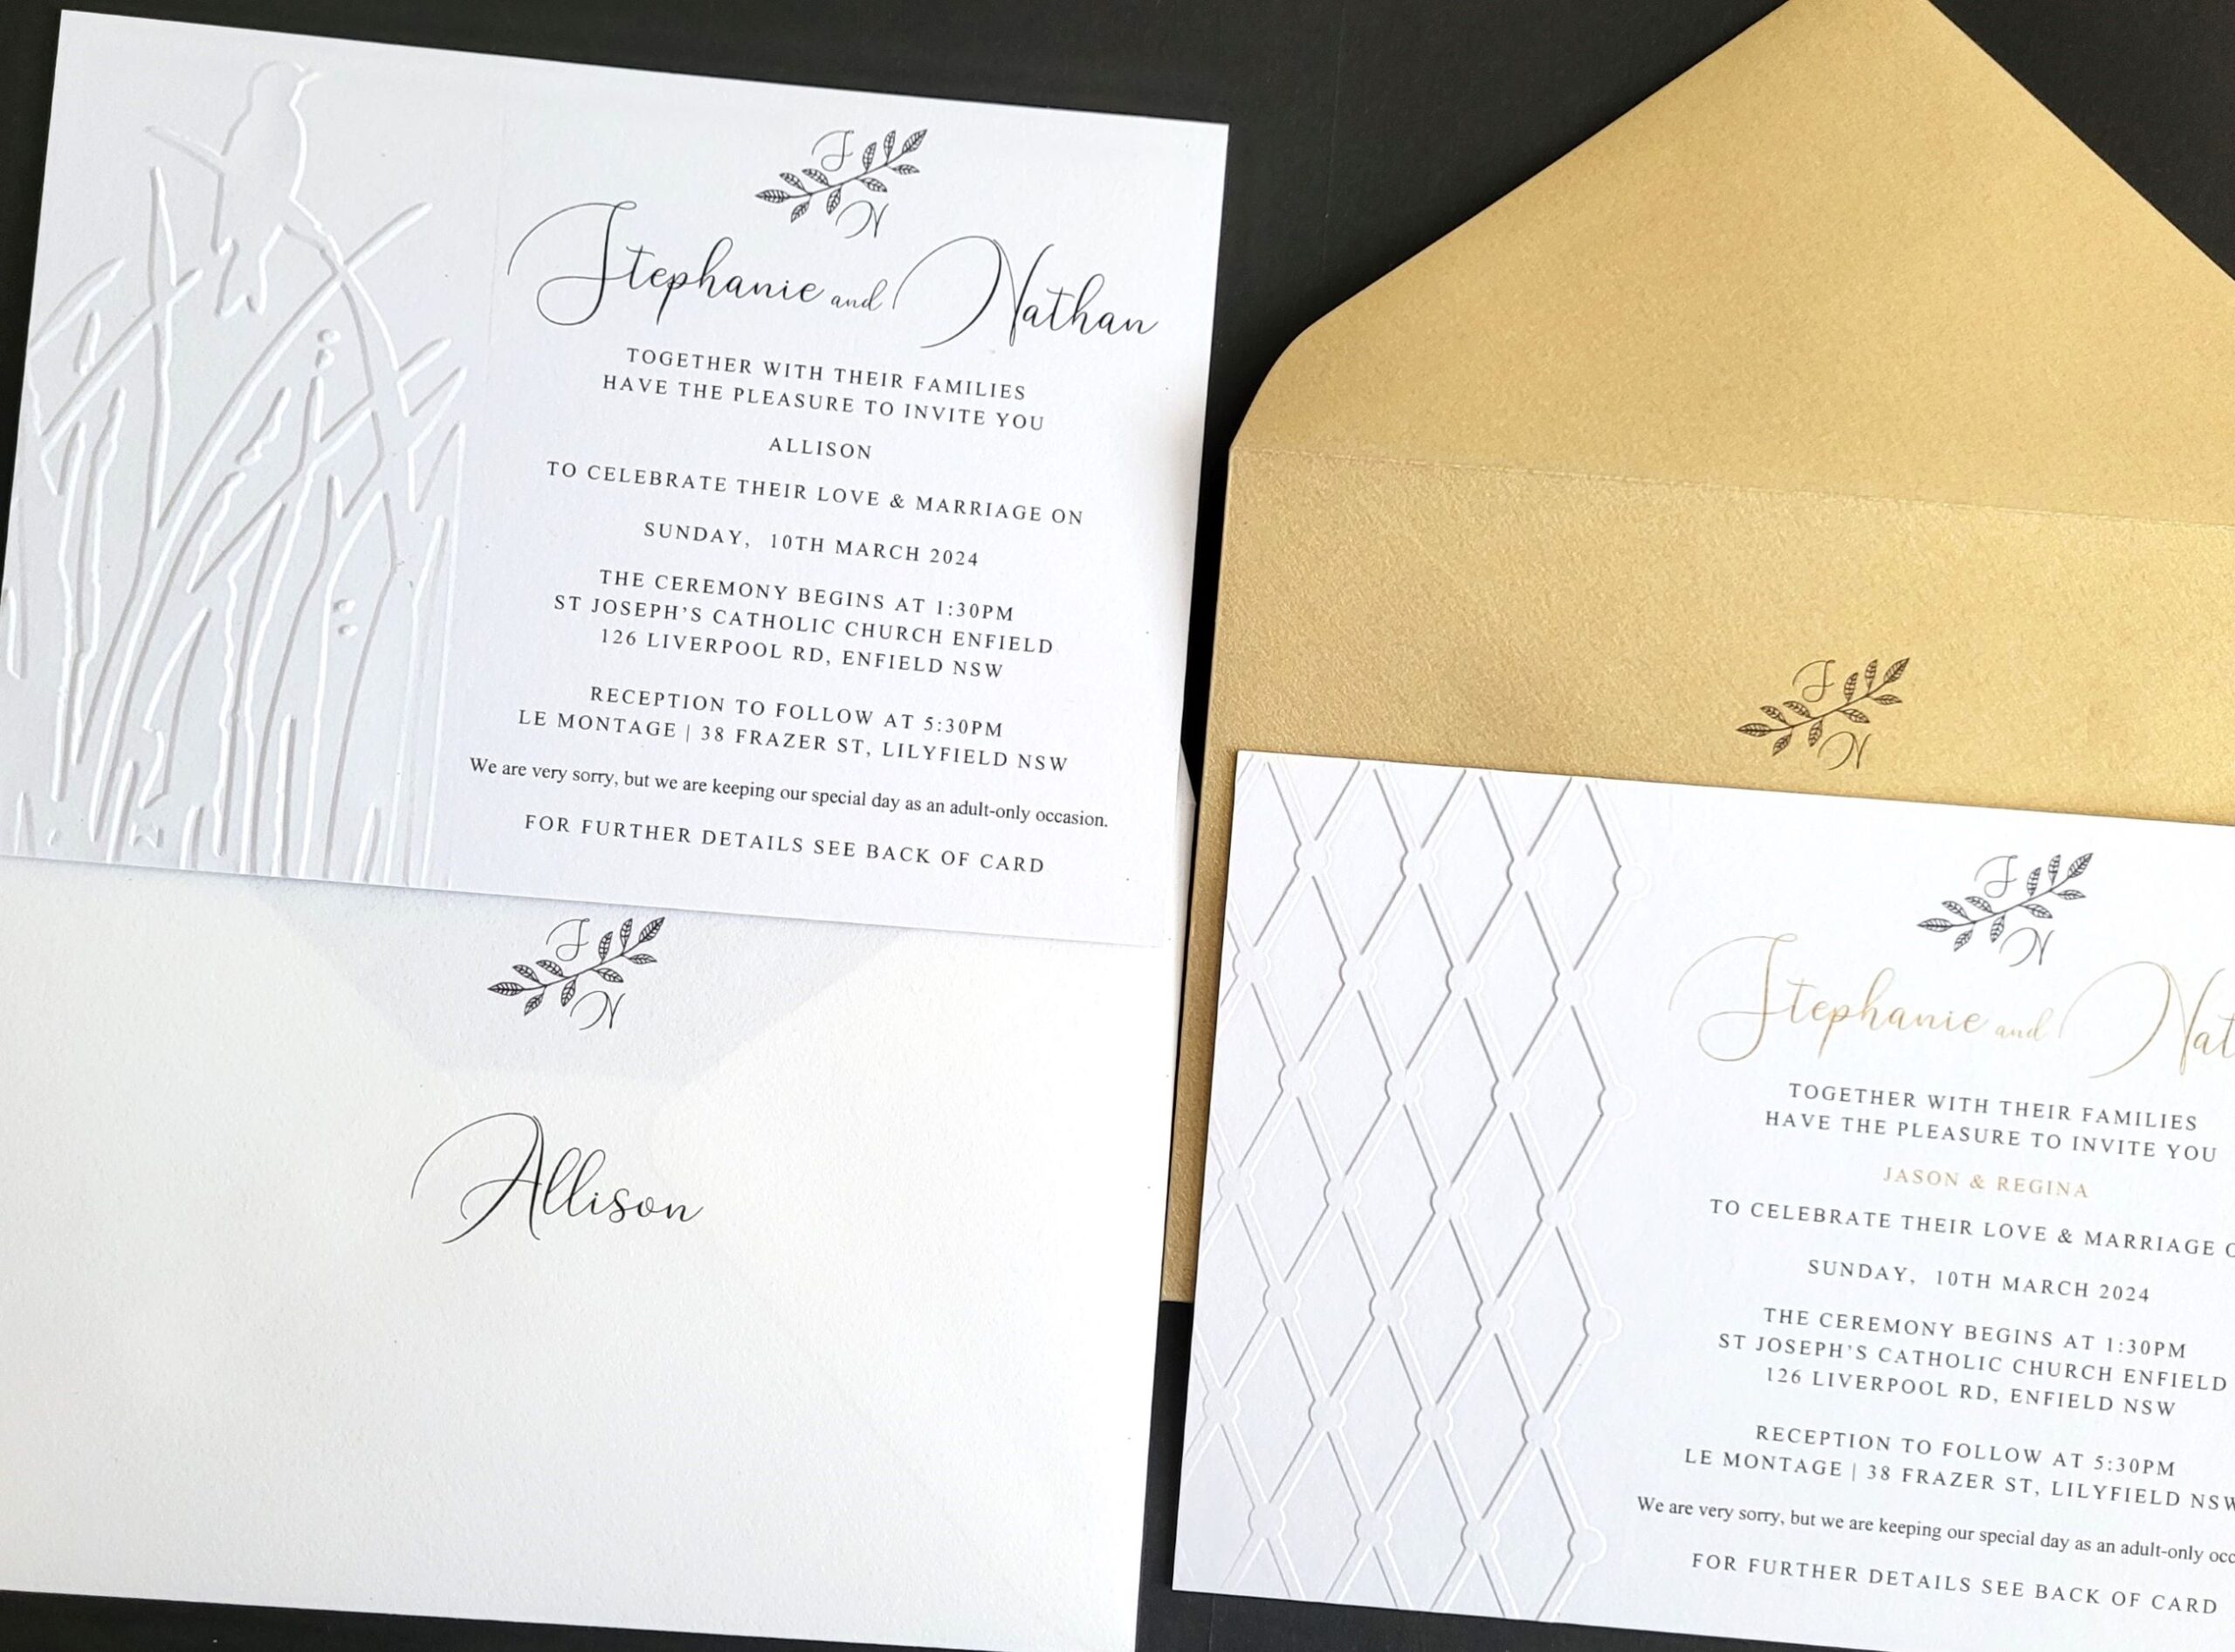 S
N
Stephanie and Nathan
TOGETHER WITH THEIR FAMILIES
HAVE THE PLEASURE TO INVITE YOU
ALLISON
TO CELEBRATE THEIR LOVE & MARRIAGE ON
SUNDAY, 10TH MARCH 2024
THE CEREMONY BEGINS AT 1:30PM
ST JOSEPH’S CATHOLIC CHURCH ENFIELD
126 LIVERPOOL RD, ENFIELD NSW
RECEPTION TO FOLLOW AT 5:30PM
LE MONTAGE | 38 FRAZER ST, LILYFIELD NSW
We are very sorry, but we are keeping our special day as an adult-only occasion.
FOR FURTHER DETAILS SEE BACK OF CARD
S
N
Allison
S
N
S
N
Stephanie and Nat
TOGETHER WITH THEIR FAMILIES
HAVE THE PLEASURE TO INVITE YOU
JASON & REGINA
TO CELEBRATE THEIR LOVE & MARRIAGE O
SUNDAY, 10TH MARCH 2024
THE CEREMONY BEGINS AT 1:30PM
ST JOSEPH’S CATHOLIC CHURCH ENFIELD
126 LIVERPOOL RD, ENFIELD NSW
RECEPTION TO FOLLOW AT 5:30PM
LE MONTAGE | 38 FRAZER ST, LILYFIELD NSW
We are very sorry, but we are keeping our special day as an adult-only occ
FOR FURTHER DETAILS SEE BACK OF CARD